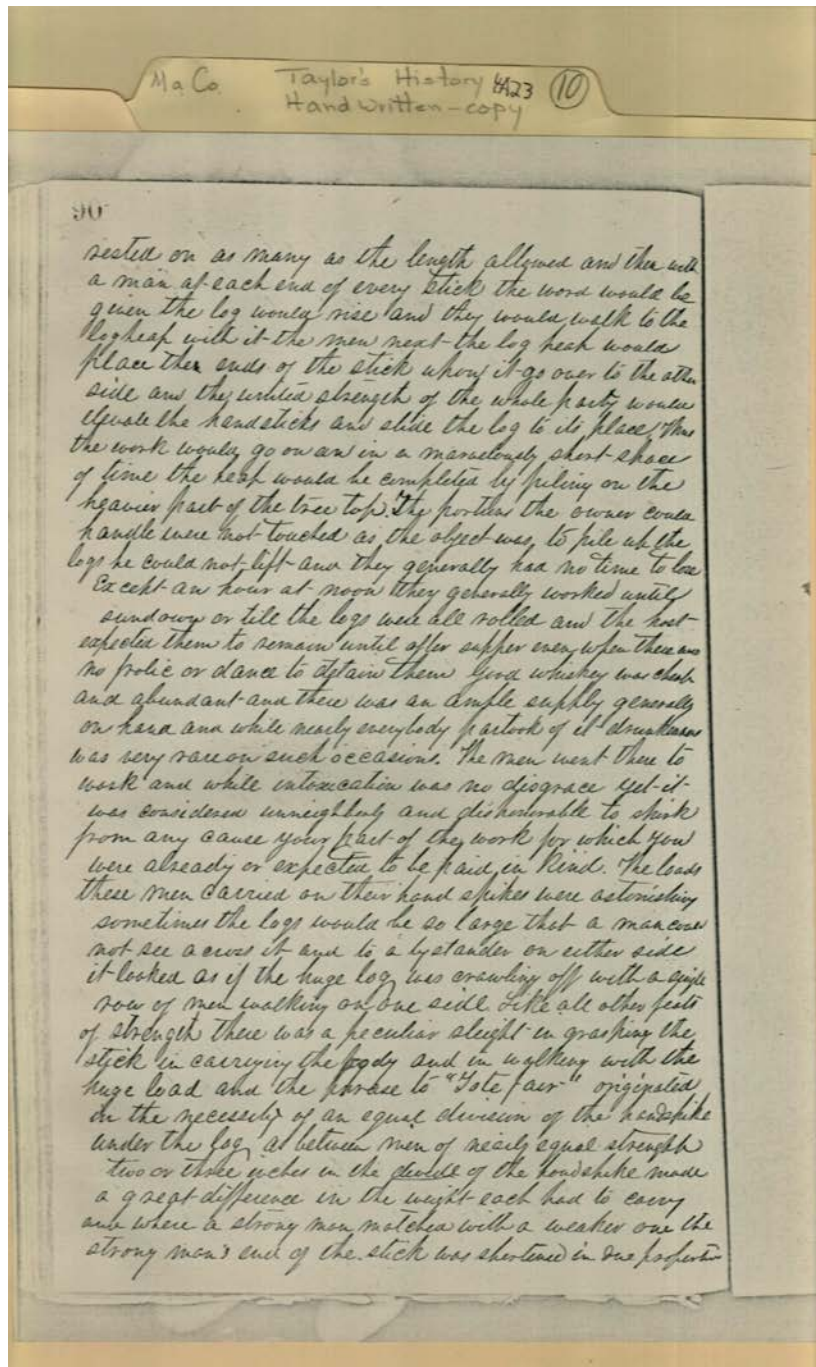 Ma Co. Taylor's History 4A23 (10)
Hand written - copy
90
rested on as many as the length allowed and then with
a man at each end of every stick the word would be
given the log would rise and they would walk to the
logheap with it the men next the log heap would
place the ends of the stick upon it go over to the other
side and the united strength of the whole party would
elevate the handsticks and slide the log to its place. Thus
the work would go on an in a marvelously short space
of time the heap would be completed by piling on the
heavier part of the tree top. The portions the owner could
handle were not touched as the object was, to pile up the
logs he could not lift and they generally had no time to lose
Except an hour at noon they generally worked until
sundown or till the logs were all rolled and the host
expected them to remain until after supper even when there was
no frolic or dance to detain them Good whiskey was cheap
and abundant and there was an ample supply generally
on hand and while nearly everybody partook of it drunkenness
was very rare on such occasions. The men went there to
work and while intoxication was no disgrace yet it
was considered unneighborly and dishonorable to shirk
from any cause your part of the work for which you
were already or expected to be paid in Kind. The loads
these men carried on their hand spikes were astonishing
sometimes the logs would be so large that a man could
not see across it and to a bystander on either side
it looked as if the huge log was crawling off with a single
row of men walking on one side. Like all other feats
of strength there was a peculiar sleight in grasping the
stick in carrying the body and in walking with the
huge load and the phrase to "Tote fair" originated
in the necessity of an equal division of the handspike
under the log, as between men of nearly equal strength
two or three inches in the divide of the handspike made
a great difference in the weight each had to carry
and where a strong man matched with a weaker one the
strong man's end of the stick was shortened in due proportion